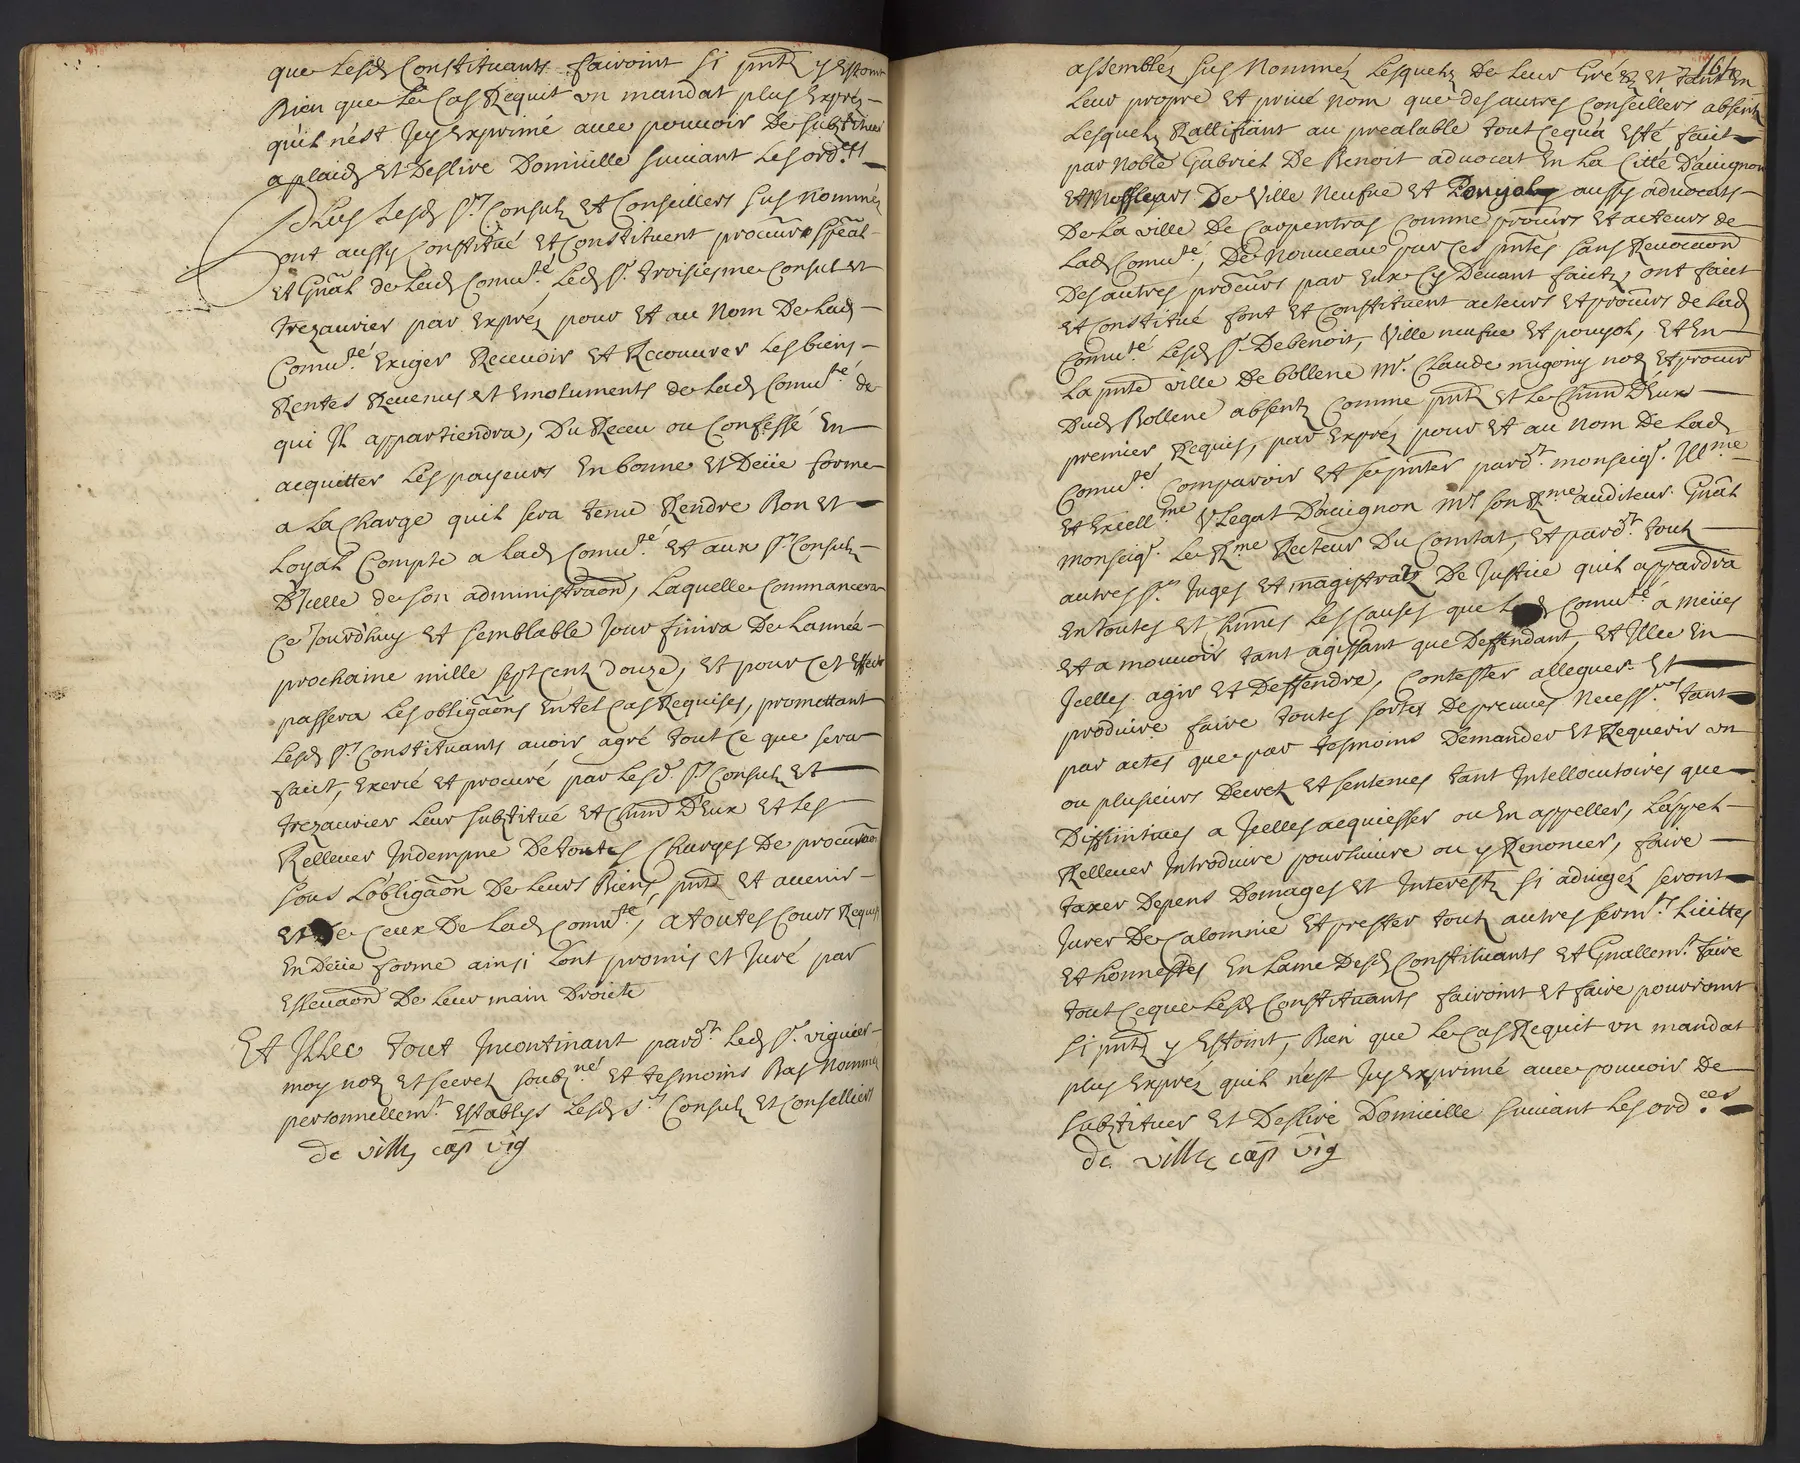 que Lesd Constituants fairoint si pnts y estoint
Bien que Le Cas Requit un mandat plus Exprés
qu'il n'est Icy Exprimé avec pouvoir De Substituer
a plaids et Deslire Domicille suivant Les ord.ces
Plus Lesd s.rs Consuls et Conseillers sus nommés
ont aussy Constitué et Constituent procur.r speal
et Gnal de Lad Comu.té Led s.r troisiesme Consul et
trezaurier par Exprés pour et au nom De Lad
Comu.té Exiger Recevoir et Recouvrer Les biens
Rentes Revenus et Emoluments de Lad Comu.té de
qui Il appartiendra, Du Receu ou Confessé En
acquitter Les payeurs En bonne et Deüe forme
a La Charge quil sera tenu Rendre Bon et
Loyal Compte a Lad Comu.té et aux s.rs Consuls
D'Icelle de son administraon, Laquelle Commancera
Ce Jourd'huy et semblable Jour finira De Lannée
prochaine mille sept cent douze, et pour cet Effect
passera Les obligaons En tel Cas Requises, promettant
Lesd s.rs Constituants avoir agré tout Ce que sera
fait, Exercé et procuré par Lesd. s.rs Consuls et
trezaurier Leur substitué et Chun D'Eux et Les
Rellever Indempne De toutes Charges De procuraon
sous L'obligaon De Leurs Biens pnts et avenir
et De Ceux De Lad Comu.té, a toutes Cours Requis
En Deüe forme ainsi Lont promis et Juré par
Eslevaon De Leur main Droicte
Et Illec tout Incontinant pard.t Led s.r viguier
moy no.re et secret.re soub.né et tesmoins Bas Nommés
personnellem.t Establys Lesd s.rs Consuls et Conselliers
de villes cap vig
164
assemblés sus Nommés Lesquels De Leur Gré et tant En
Leur propre et privé nom que des autres Conseillers absents
Lesquels Rattifiant au prealable tout Ce qu'a Esté fait
par Noble Gabriel De Benoit advocat En La Citté D'avignon
et Messieurs De Ville Neufve et Poujol aussy advocats
De La ville De Carpentras Comme procurs et acteurs de
Lad Comu.té, De Nouveau par Ces pntes sans Revocaon
Des autres procurs par Eux Cy Devant faits, ont faict
et Constitué font et Constituent acteurs et procurs de Lad
Comu.té Lesd s.rs De benoit, Ville neufve et poujol, et En
La pnte ville De bollene M.r Claude no.re et procur
Dud Bollene absents Comme pnts et Le Chun D'Eux
premier Requis, par Exprés pour et au nom De Lad
Comu.té Comparoir et se pnter pard.t monseig.r Ill.me
et Excell.me VLegat D'avignon M.r son R.me auditeur Gnal
monseig.r Le R.me Recteur Du Comtat, et pard.t tout
autres s.rs Juges et magistrats De Justice quil appardra
En toutes et Chunes Les Causes que Lad Comu.té á meües
et a mouvoir tant agissant que Deffendant, et Illec En
Icelles agir et Deffendre, Contester alleguer Et
produire faire toutes sortes De preuves Necess.res tant
par actes que par tesmoins Demander et Requerir un
ou plusieurs Decret et sentences tant Intellocutoires que
Diffinitives a Icelles acquiesser ou En appeller, Lappel
Rellever Introduire poursuivre ou y Renoncer, faire
taxer Depens Domages et Interests si adjugés seront
Jurer De Calomnie et prester tout autres serm.ts Licittes
et honnestes En Lame Desd Constituants et Gnallem.t faire
tout Ce que Lesd Constituants fairoint et faire pourroint
si pnts y Estoint, Bien que Le Cas Requit un mandat
plus Exprés quil n'est Icy Exprimé avec pouvoir De
substituer et Deslire Domicille suivant Les ord.ces
de villes cap vig